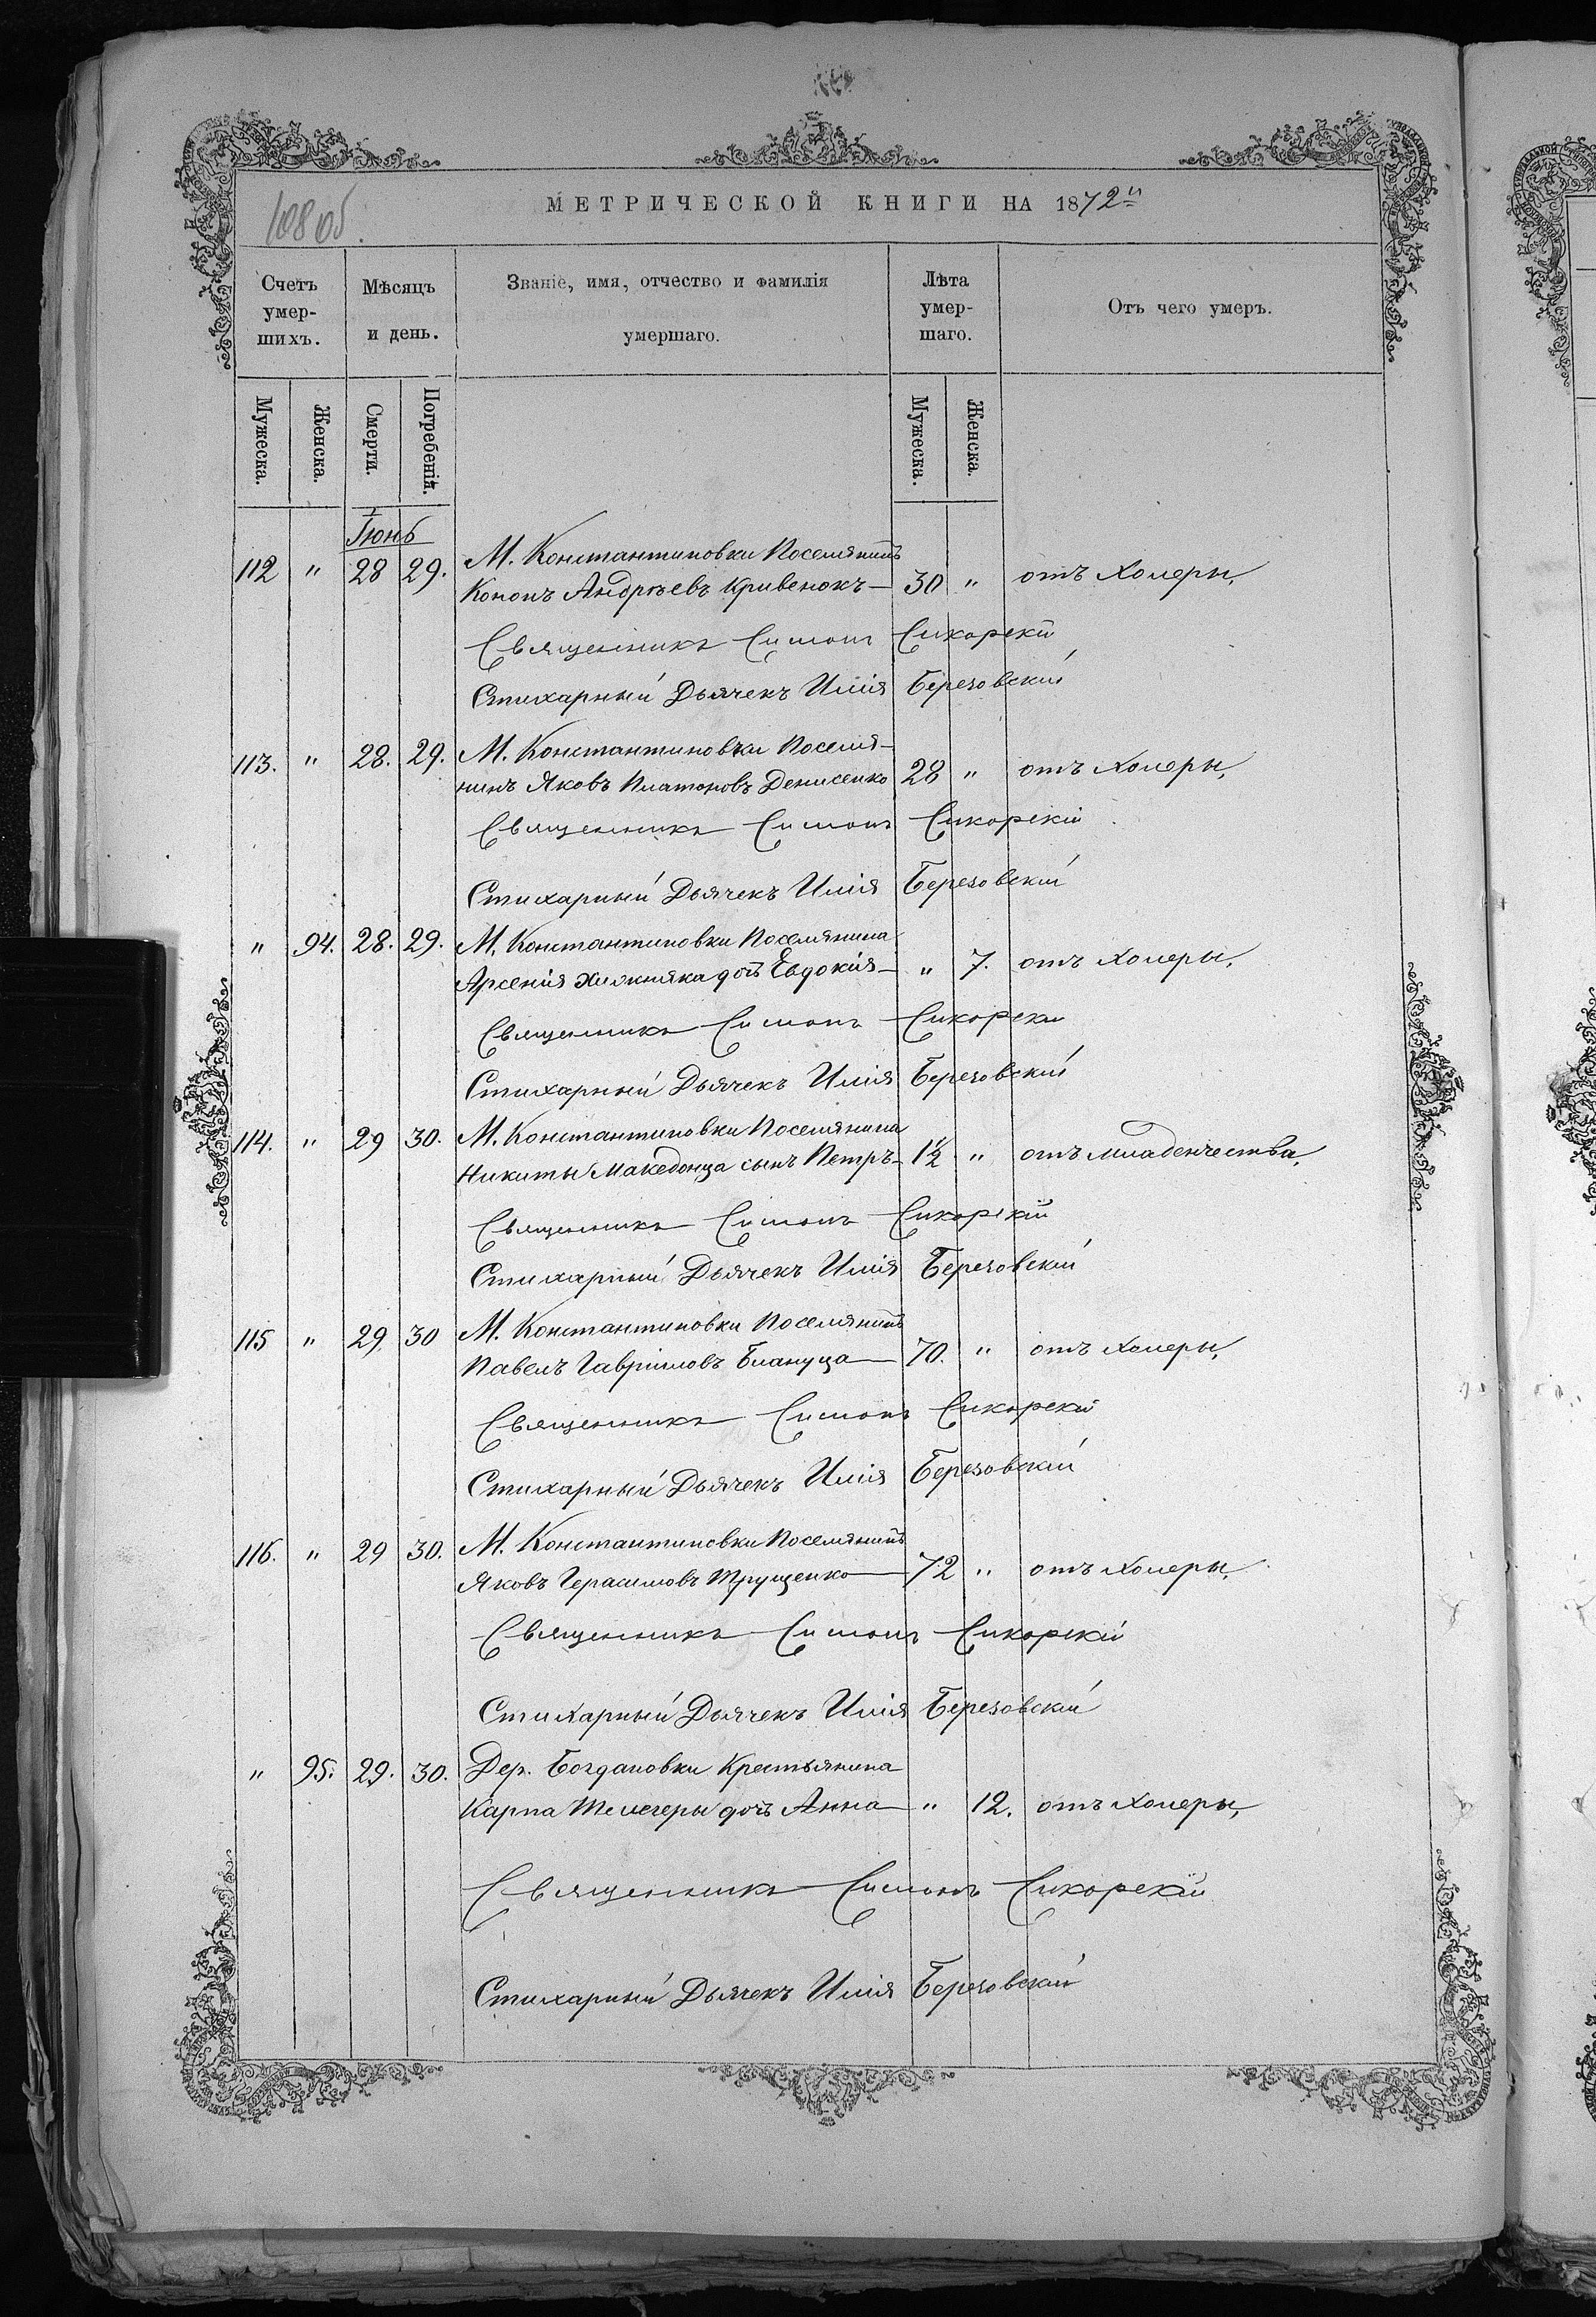 МЕТРИЧЕСКОЙ КНИГИ НА 1872й
10805.
Счетъ умершихъ.
Мѣсяцъ и день.
Званіе, имя, отчество и фамилія умершаго.
Лѣта умершаго.
Отъ чего умеръ.
Мужеска. Женска. Смерти. Погребенія. Мужеска. Женска.
Іюнь
М. Константиновки Поселянинъ
112 " 28 29. Кононъ Андреѣвъ Кривенокъ— 30 " отъ Холеры,
Священникъ Симонъ Сикорскій
Стихарный Дьячекъ Илія Березовскій
113. " 28. 29. М. Константиновки Поселя-
нинъ Яковъ Платоновъ Денисенко 28 " отъ Холеры,
Священникъ Симонъ Сикорскій
Стихарный Дьячекъ Илія Березовскій
" 94. 28. 29. М. Константиновки Поселянина
Арсенія Хижняка дочь Евдокія— " 7. отъ Холеры,
Священникъ Симонъ Сикорскій
Стихарный Дьячекъ Илія Березовскій
114. " 29 30. М. Константиновки Поселянина
Никиты Македонца сынъ Петръ— 1½ " отъ младенчества,
Священникъ Симонъ Сикорскій
Стихарный Дьячекъ Илія Березовскій
115 " 29. 30 М. Константиновки Поселянинъ
Павелъ Гавріиловъ Блануца— 70. " отъ Холеры,
Священникъ Симонъ Сикорскій
Стихарный Дьячекъ Илія Березовскій
116. " 29 30. М. Константиновки Поселянинъ
Яковъ Герасимовъ Трущенко— 72 " отъ Холеры,
Священникъ Симонъ Сикорскій
Стихарный Дьячекъ Илія Березовскій
" 95. 29. 30. Дер. Богдановки Крестьянина
Карпа Телегеры дочь Анна— " 12. отъ Холеры,
Священникъ Симонъ Сикорскій
Стихарный Дьячекъ Илія Березовскій